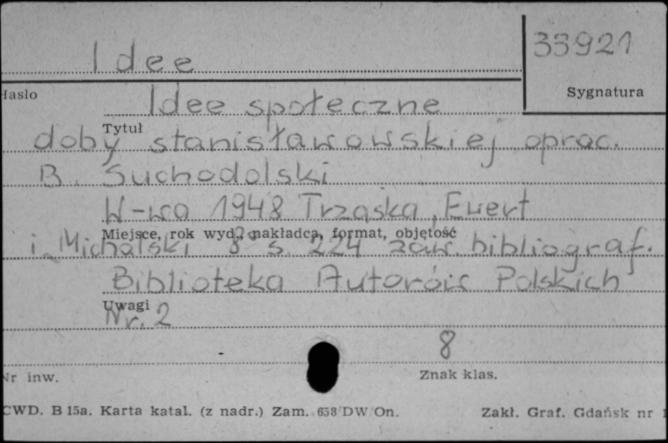 Idee
33921
Hasło
Sygnatura
Idee społeczne
Tytuł
doby stanisławowskiej oprac.
B. Suchodolski
W-wa 1948 Trzaska, Ewert
Miejsce, rok wyd., nakładca, format, objętość
i Michalski 8° s. 224 zaw. bibliograf.
Biblioteka Autorów Polskich
Uwagi
Nr. 2
8
Nr inw.
Znak klas.
CWD. B 15a. Karta katal. (z nadr.) Zam. 658/DW/On.
Zakł. Graf. Gdańsk nr 1